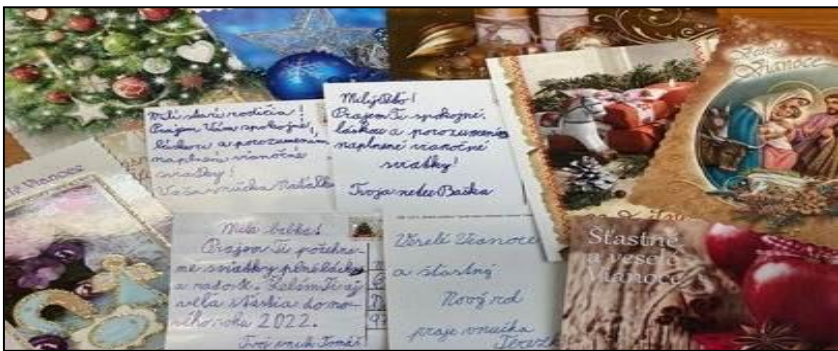 Veselé
Vianoce
Milí starí rodičia!
Prajem Vám spokojné,
láskou a porozumením
naplnené vianočné
sviatky!
Vaša vnučka Natálka
Milý Peťo!
Prajem Ti spokojné,
láskou a porozumením
naplnené vianočné
sviatky!
Tvoja neter Baška
Vianoce
Milá babka!
Prajem Ti požehna-
né sviatky plné lásky
a radosti. Želám Ti aj
veľa šťastia do no-
vého roku 2022.
Tvoj vnuk Tomáš
Veselé Vianoce
a šťastný
Nový rok
praje vnučka
Terezka
Šťastné
a veselé
Vianoce